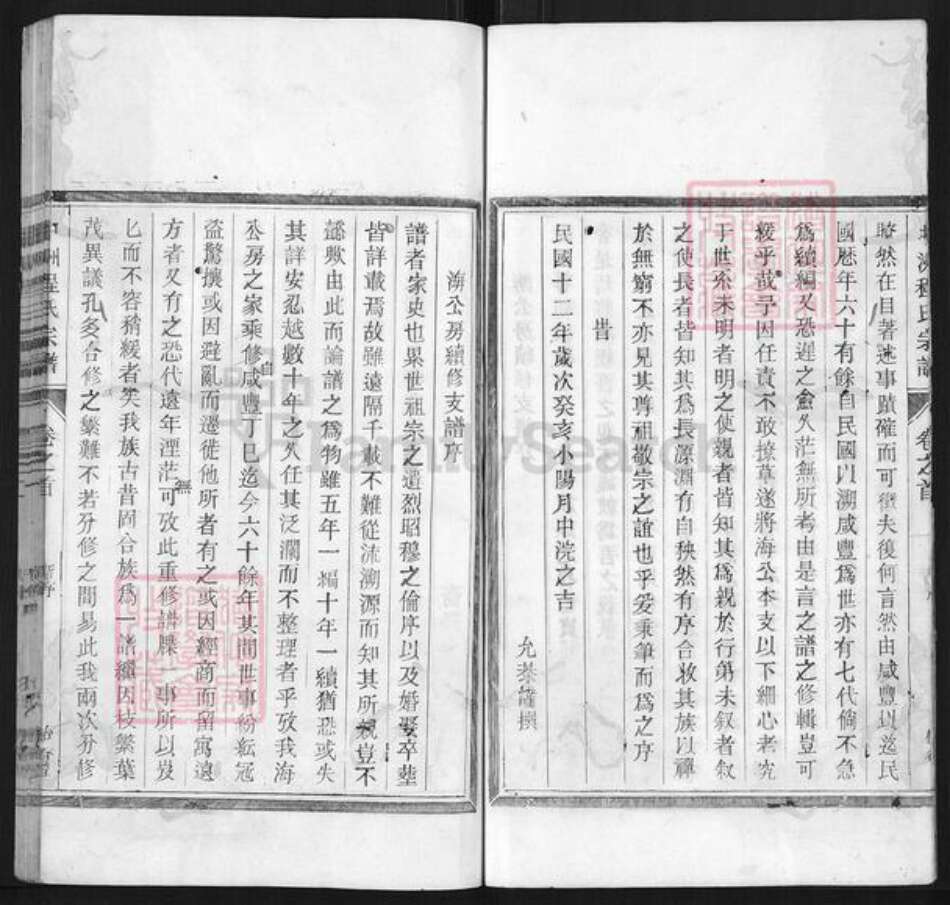 程氏宗譜
卷之首
時然在目著述事蹟確而可徵夫復何言然由咸豐以迄民
國歷年六十有餘自民國以溯咸豐爲世亦有七代倘不急
爲續編又恐遲之愈久茫無所考由是言之譜之修輯豈可
緩乎哉予因任責不敢撩草遂將海公本支以下細心考究
于世系未明者明之使親者皆知其爲親於行第未叙者叙
之使長者皆知其爲長源淵有自秩然有序合收其族以禪
於無窮不亦見其尊祖敬宗之誼也乎爰秉筆而爲之序
旹
民國十二年歲次癸亥小陽月中浣之吉
允恭謹撰
海公房續修支譜序
譜者家史也累世祖宗之遺烈昭穆之倫序以及婚娶卒塟
皆詳載焉故雖遠隔千載不難從流溯源而知其所親豈不
懿歟由此而論譜之爲物雖五年一編十年一續猶恐或失
其詳安忍越數十年之久任其泛濶而不整理者乎攷我海
公房之家乘修自咸豐丁巳迄今六十餘年其間世事紛紜冦
盜驚攘或因避亂而遷徙他所者有之或因經商而留寓遠
方者又有之恐代遠年湮茫無可攷此重修譜牒一事所以岌
岌而不容稍緩者矣我族古昔固合族爲一譜繼因枝繁葉
茂異議孔多合修之繁難不若分修之間易此我兩次分修
程氏宗譜
卷之首